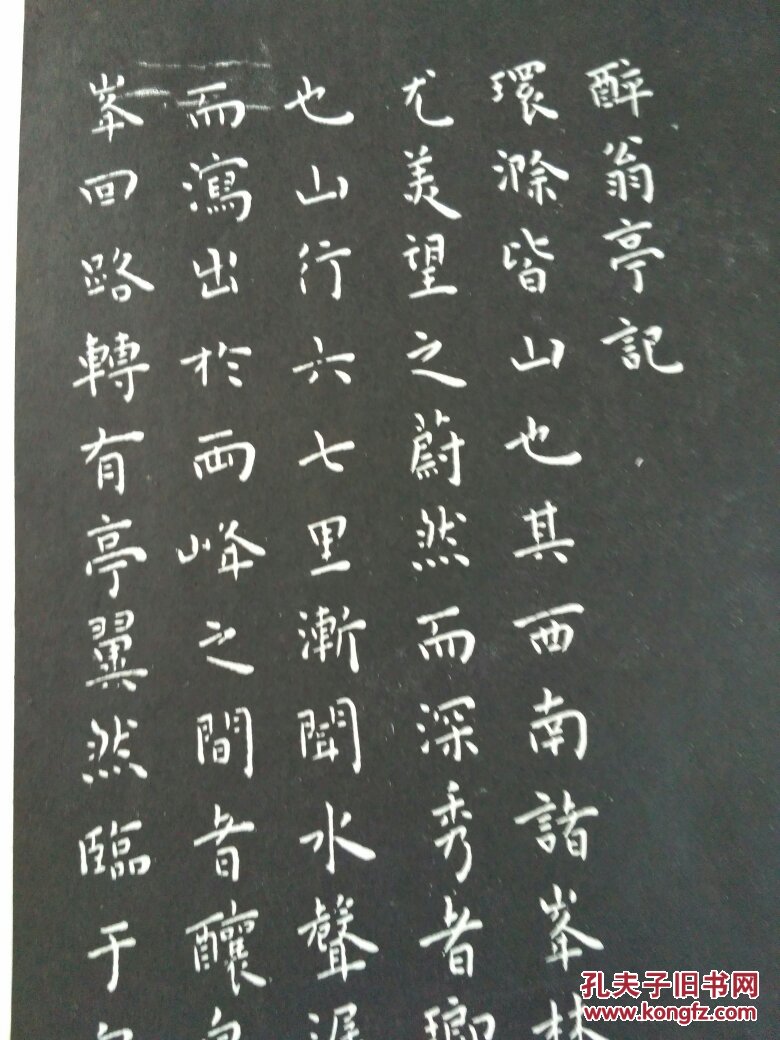 醉翁亭記
環滁皆山也其西南諸峯林
尤美望之蔚然而深秀者瑯
也山行六七里漸聞水聲潺
而瀉出於両峰之間者釀
峯回路轉有亭翼然臨于
孔夫子旧书网
www.kongfz.com